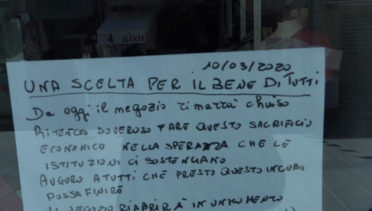 10/03/2020
UNA SCELTA PER IL BENE DI TUTTI
Da oggi il negozio rimarrà chiuso
RITENGO DOVEROSO FARE QUESTO SACRIFICIO
ECONOMICO NELLA SPERANZA CHE LE
ISTITUZIONI CI SOSTENGANO
AUGURO A TUTTI CHE PRESTO QUESTO INCUBO
POSSA FINIRE
IL NEGOZIO RIAPRIRÀ IN UN MOMENTO